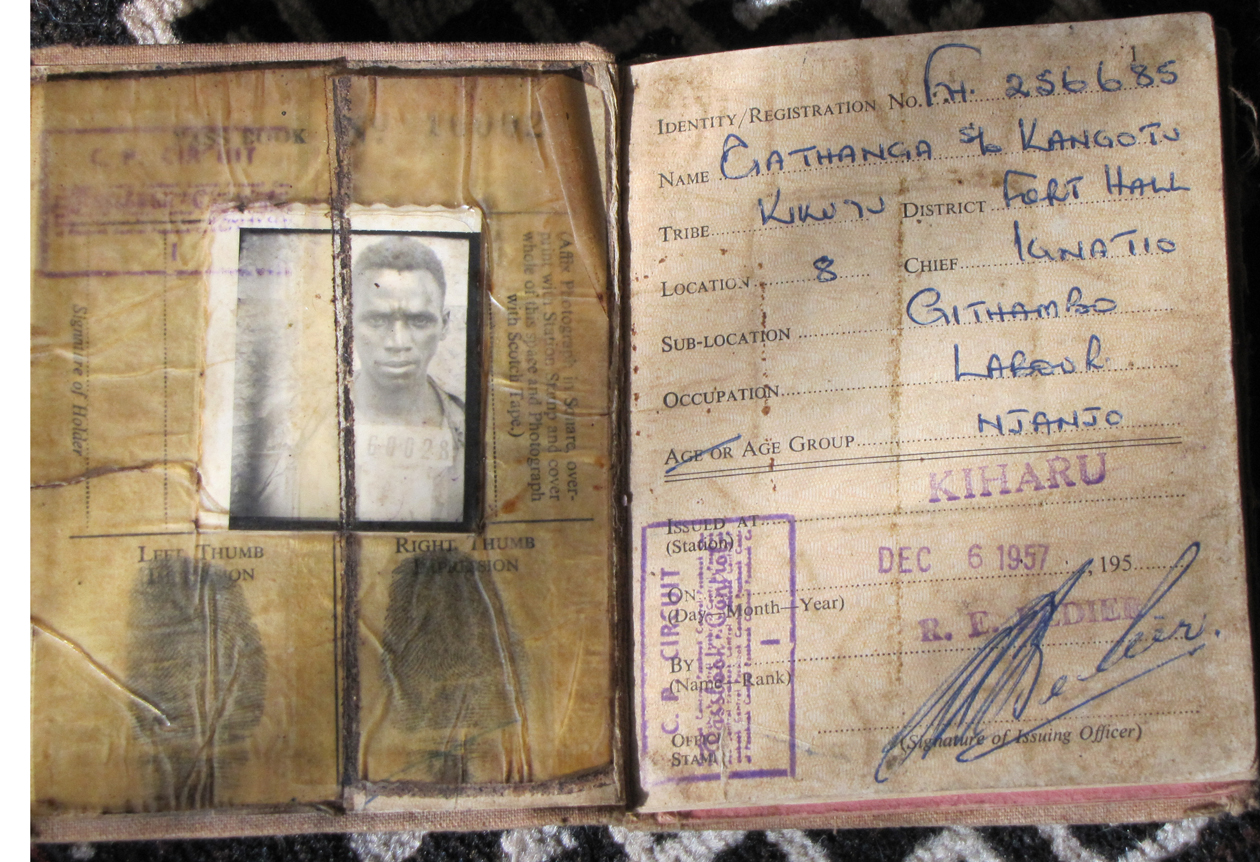 PASS BOOK No
C. P. CIRCUIT
1
(Affix Photograph in Square, over-
print with Station Stamp and cover
whole of this space and Photograph
with Scotch Tape.)
60028
Signature of Holder
LEFT THUMB
RIGHT THUMB
IMPRESSION
1
IDENTITY/REGISTRATION No. FH. 256685
NAME GATHANGA s/o KANGOTU
TRIBE KIKUYU DISTRICT FORT HALL
LOCATION 8 CHIEF IGNATIO
SUB-LOCATION GITHAMBO
OCCUPATION LABOUR
AGE OR AGE GROUP NJANJO
KIHARU
ISSUED AT
(Station)
DEC 6 1957 , 195
ON
(Day—Month—Year)
R. E.
BY
(Name—Rank)
OFFICE
STAMP
(Signature of Issuing Officer)
C. P. CIRCUIT
Passbook Control
1